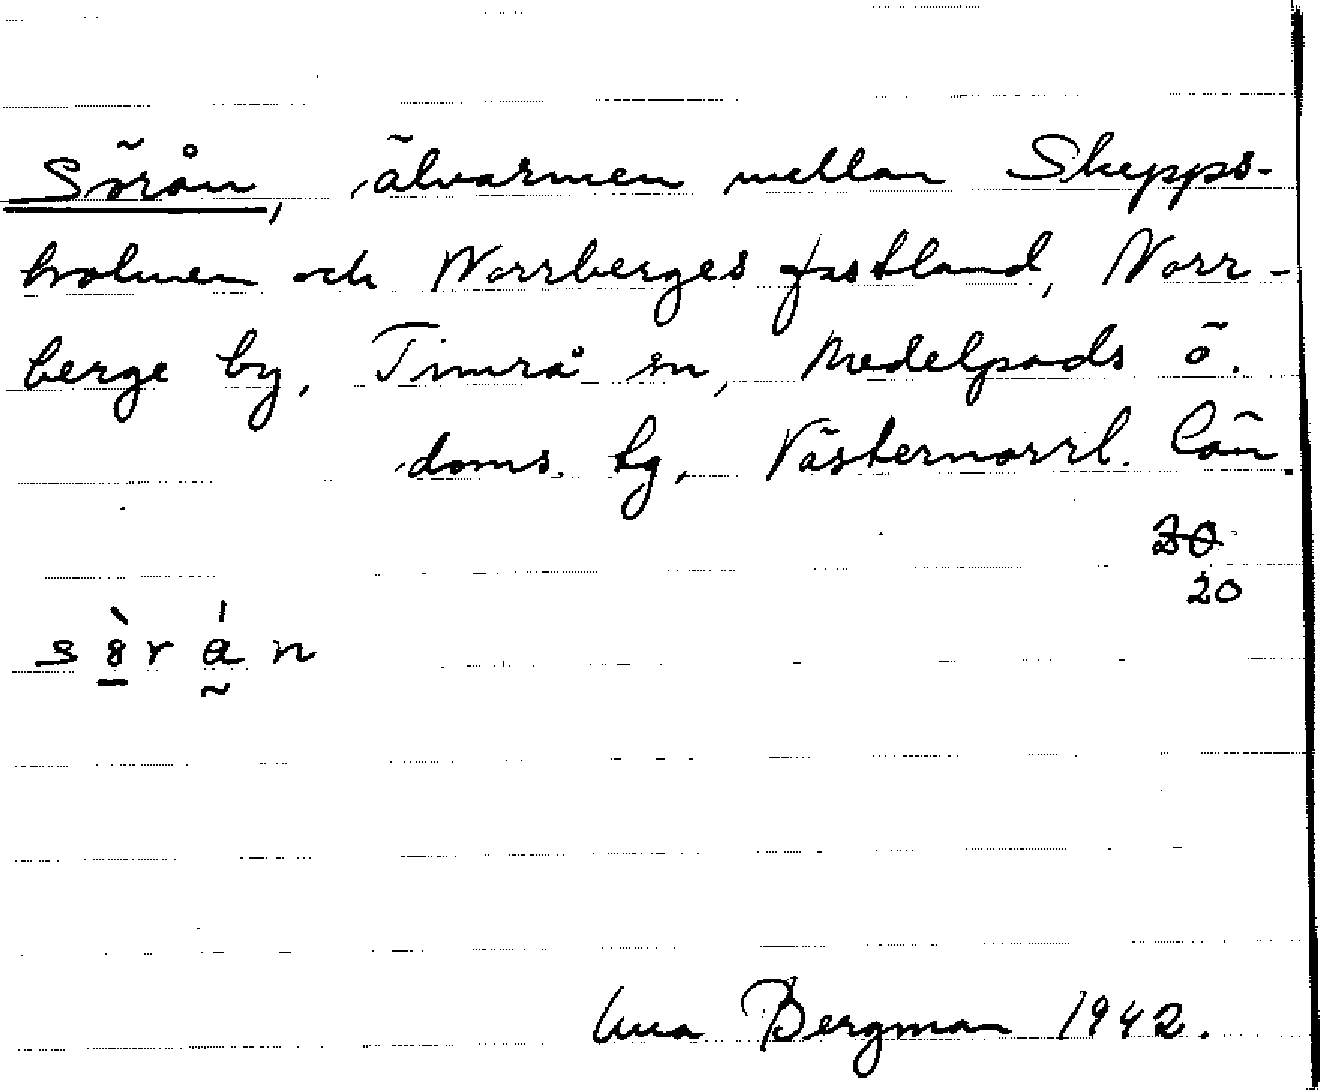 Sörån, älvarmen mellan Skepps-
holmen och Norrberges fastland, Norr-
berge by, Timrå sn, Medelpads ö.
doms. tg, Västernorrl. län.
30
20
s ö̀ r á n
Bergman 1942.